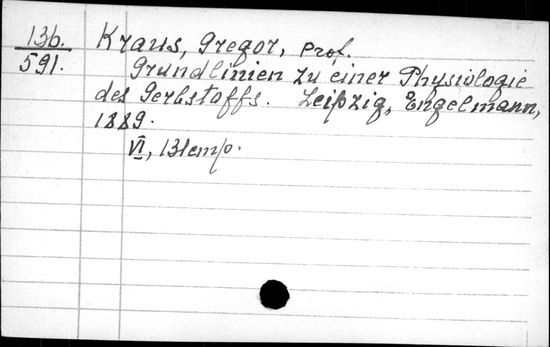 13b.
591.
Kraus, Gregor, Prof.
Grundlinien zu einer Physiologie
des Gerbstoffs. Leipzig, Engelmann,
1889.
VI, 131 стр.